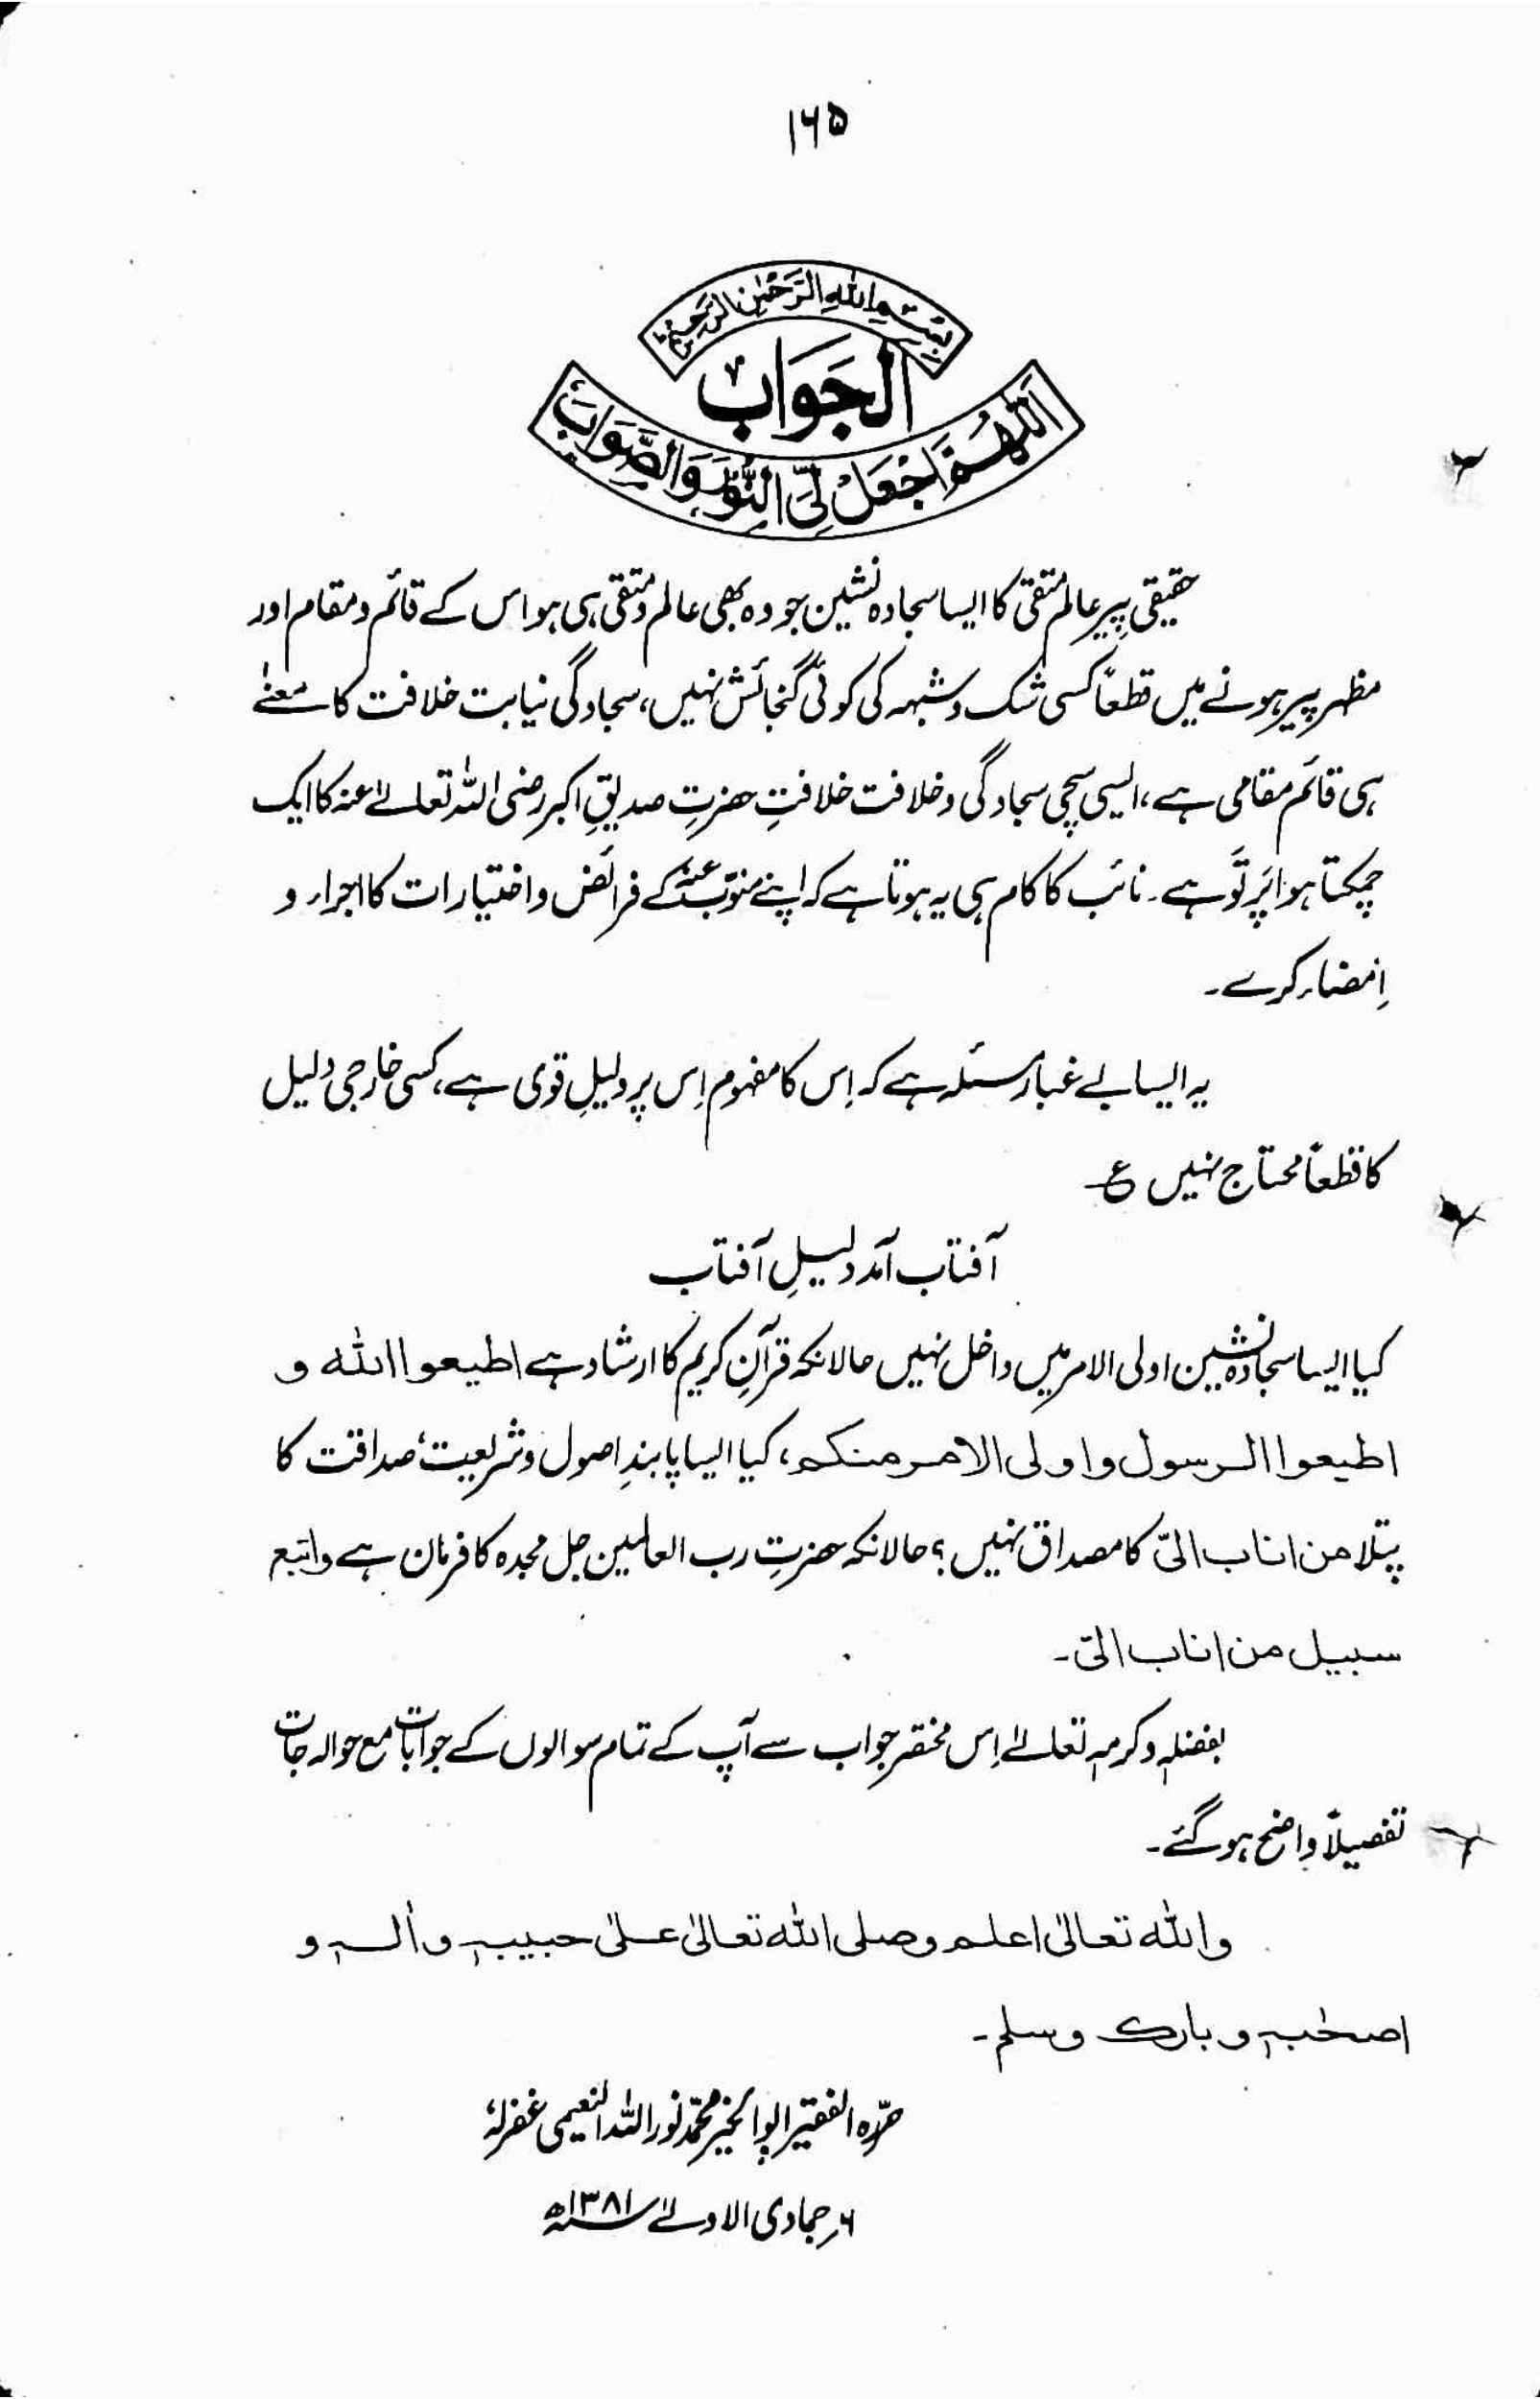 ۱۶۵
بِسْمِ اللّٰهِ الرَّحْمٰنِ الرَّحِيْمِ
الجَوَابُ
اَللّٰهُمَّ اجْعَلْ لِّيَ النُّوْرَ وَالصَّوَابَ
حقیقی پیرِ عالم متقی کا ایسا سجادہ نشین جو وہ بھی عالم و متقی ہی ہو اس کے قائم و مقام اور
مظہرِ پیر ہونے میں قطعاً کسی شک و شبہہ کی کوئی گنجائش نہیں، سجادگی نیابت خلافت کا معنےٰ
ہی قائم مقامی ہے، ایسی سچی سجادگی و خلافت خلافتِ حضرتِ صدیقِ اکبر رضی اللہ تعالےٰ عنہ کا ایک
چمکتا ہوا پَرتَو ہے۔ نائب کا کام ہی یہ ہوتا ہے کہ اپنے منوب عنہٗ کے فرائض و اختیارات کا اجراء و
اِمضاء کرے۔
یہ ایسا بے غبار مسئلہ ہے کہ اِس کا مفہوم اِس پر دلیلِ قوی ہے، کسی خارجی دلیل
کا قطعاً محتاج نہیں ع
آفتاب آمد دلیلِ آفتاب
کیا ایسا سجادہ نشین اولی الامر میں داخل نہیں حالانکہ قرآنِ کریم کا ارشاد ہے اطیعوا اللہ و
اطیعوا الرسول واولی الامر منکم، کیا ایسا پابندِ اصول و شریعت، صداقت کا
پتلا من اناب الیّ کا مصداق نہیں؟ حالانکہ حضرتِ رب العٰلمین جل مجدہ کا فرمان ہے واتبع
سبیل من اناب الیّ۔
بفضلہٖ وکرمہٖ تعالےٰ اِس مختصر جواب سے آپ کے تمام سوالوں کے جوابات مع حوالہ جات
تفصیلاً واضح ہو گئے۔
واللہ تعالیٰ اعلم وصلی اللہ تعالیٰ علیٰ حبیبہٖ واٰلہٖ و
اصحٰبہٖ وبارک وسلم۔
حرّرہ الفقیر ابوالخیر محمّد نور اللہ النعیمی غفرلہٗ
۶ جمادی الاولےٰ سنہ ۱۳۸۱ھ